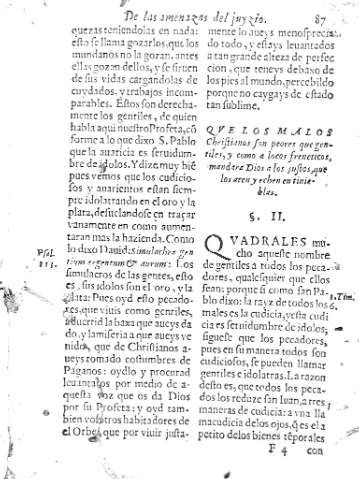 De las amenazas del juyzio. 87
quezas teniendolas en nada:
esto se llama gozarlos, que los
mundanos no la gozan. antes
ellas gozan dellos, y se siruen
de sus vidas cargandolas de
cuydados, y trabajos incom-
parables. Estos son derecha-
mente los gentiles, de quien
habla aqui nuestro Profeta, cõ
forme a lo que dixo S. Pablo
que la auaricia es seruidum-
bre de idolos. Y dize muy biẽ
pues vemos que los cudicio-
sos y auarientos estan siem-
pre idolatrando en el oro y la
plata, desuelandose en traçar
vanamente en como aumen-
taran mas la hazienda. Como
lo dixo Dauid: simulachra gen
Psal.
113.
tium argentum & aurum: Los
simulacros de las gentes, esto
es, sus idolos son el oro, y la
plata: Pues oyd esto pecado-
res, que viuis como gentiles,
aduertid la baxa que aueys da
do, y la miseria a que aueys ve
nido, que de Christianos a-
ueys tomado costumbres de
Paganos: oydlo y procurad
leuantaros por medio de a-
questa voz que os da Dios
por su Profeta: y oyd tam-
bien vosotros habitadores de
el Orbe, que por viuir justa-
mente lo aueys menosprecia
do todo, y estays leuantados
a tan grande alteza de perfec
cion, que teneys debaxo de
los pies al mundo, percebildo
porque no caygays de estado
tan sublime.
QVE LOS MALOS
Christianos son peores que gen-
tiles, y como a locos freneticos,
mandara Dios a los justos, que
los aten y echen en tinie-
blas.
§. II.
QVADRALES mu-
cho aqueste nombre
de gentiles a todos los peca-
dores, qualesquier que ellos
sean: porque si como san Pa-
blo dixo: la rayz de todos los
1. Tim.
6.
males es la cudicia, y esta cudi
cia es seruidumbre de idolos;
siguese que los pecadores,
pues en su manera todos son
cudiciosos, se pueden llamar
gentiles e idolatras. La razon
desto es, que todos los peca-
dos los reduze san Iuan, a tres
maneras de cudicia: a vna lla
ma cudicia delos ojos, q̃ es el a
petito delos bienes tẽporales
F 4 con